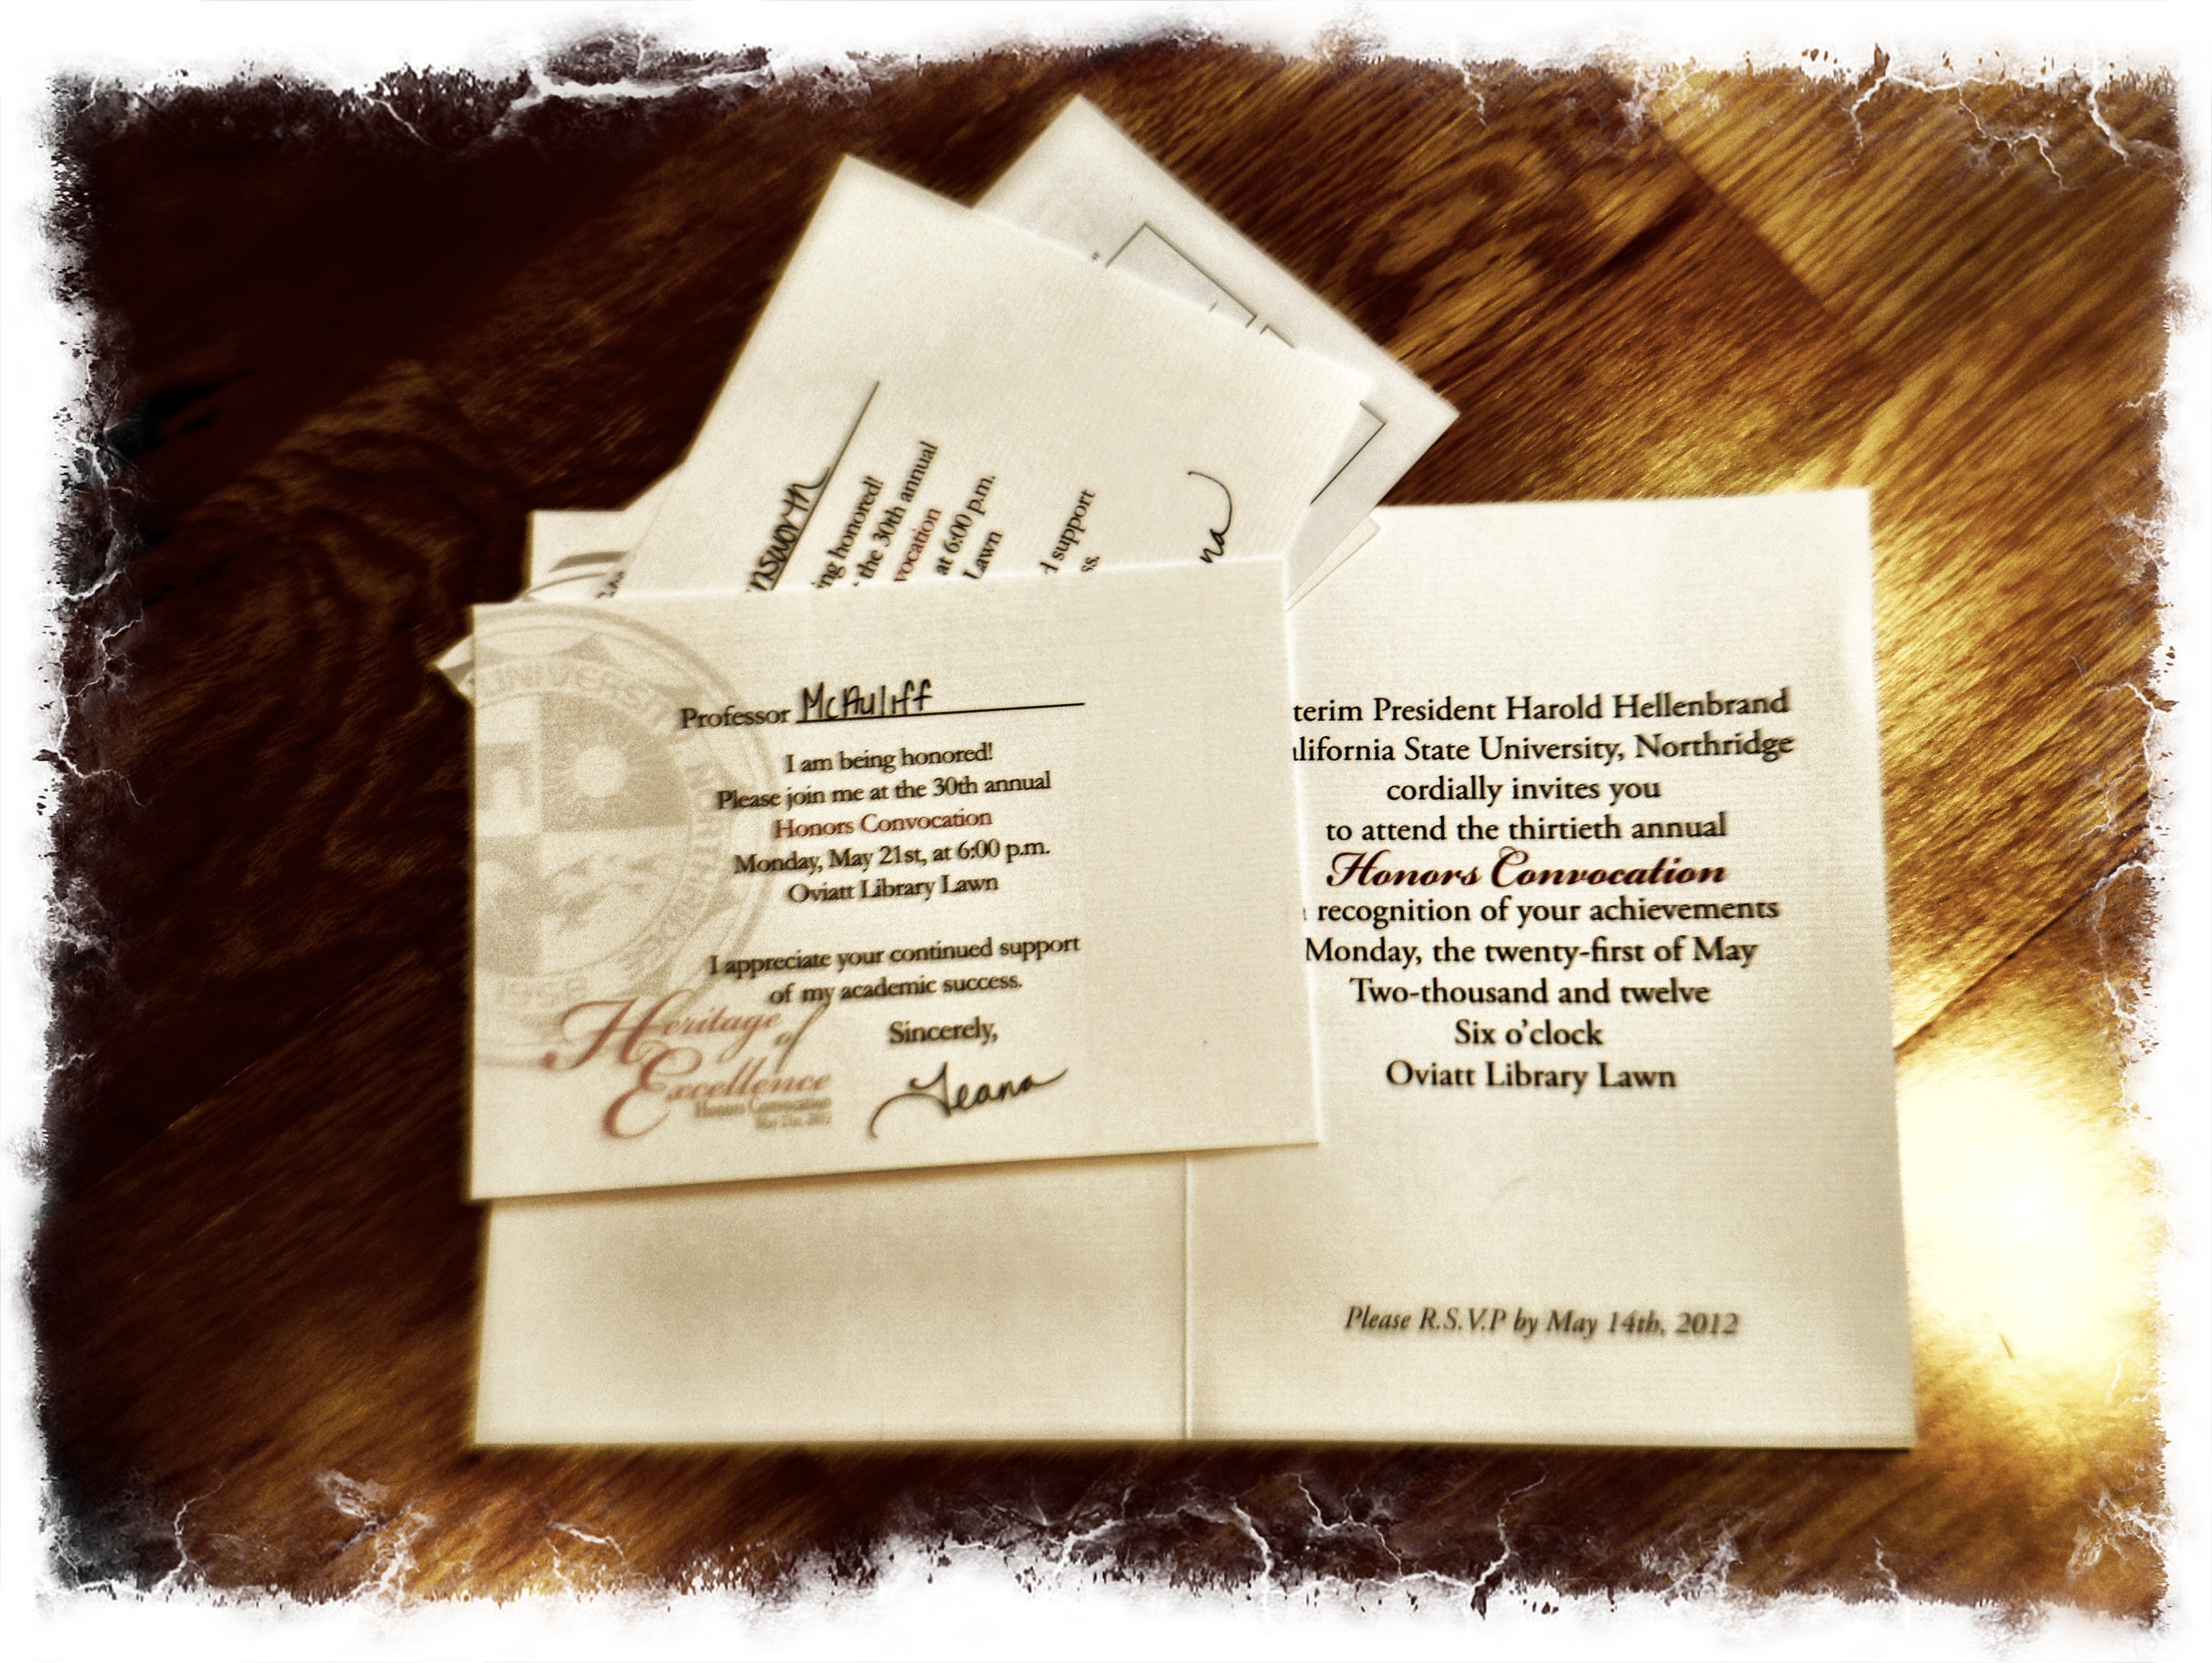 Professor McAuliff
I am being honored!
Please join me at the 30th annual
Honors Convocation
Monday, May 21st, at 6:00 p.m.
Oviatt Library Lawn
I appreciate your continued support
of my academic success.
Sincerely,
Jeana
Heritage
of
Excellence
Honors Convocation
May 21st, 2012
UNIVERSITY
NORTHRIDGE
terim President Harold Hellenbrand
lifornia State University, Northridge
cordially invites you
to attend the thirtieth annual
Honors Convocation
recognition of your achievements
Monday, the twenty-first of May
Two-thousand and twelve
Six o'clock
Oviatt Library Lawn
Please R.S.V.P by May 14th, 2012
nsworth
ing honored!
the 30th annual
vocation
at 6:00 p.m.
Lawn
support
ss.
na